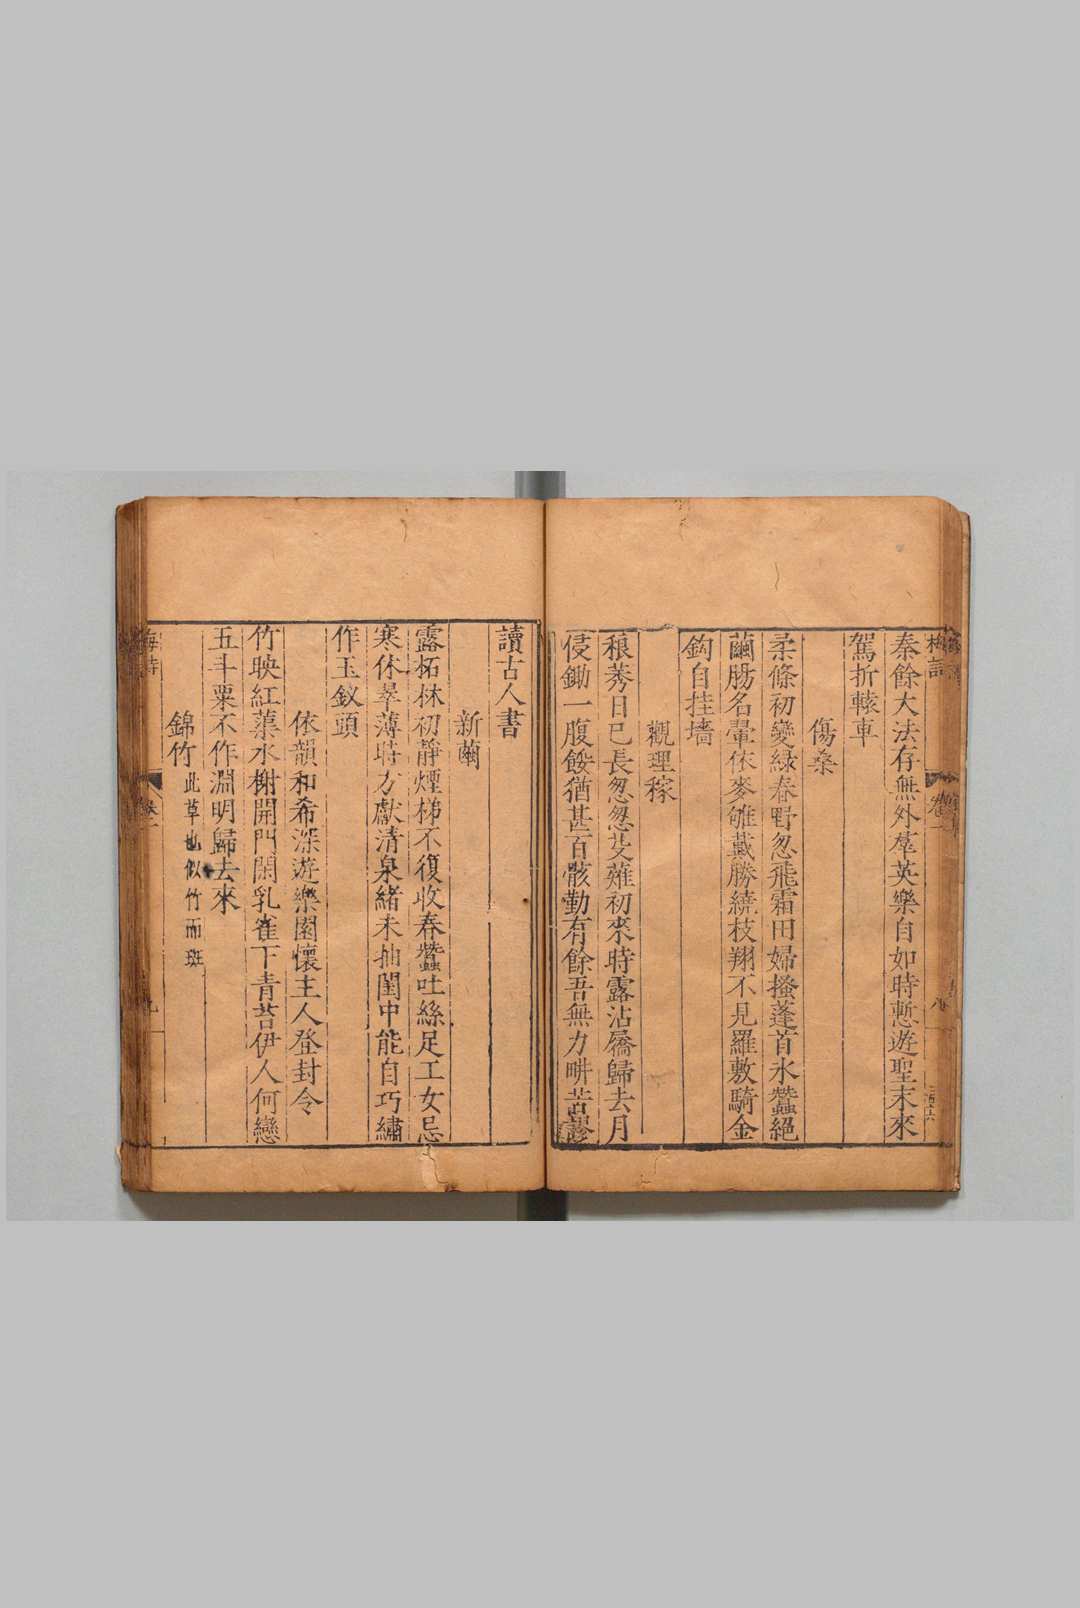 秦餘大法存無外耄英樂自如時慙遊聖末來
駕折轅車
傷桑
柔條初變緑春野忽飛霜田婦搔蓬首氷蠶絕
繭腸名翬依麥雊戴勝繞枝翔不見羅敷騎金
鈎自挂墻
觀理稼
稂莠日已長忽忽芟薙初來時露沾屩歸去月
侵鋤一腹餒猶甚百骸勤有餘吾無力畊苦謬
讀古人書
新繭
露柘林初靜煙梯不復收春蠶吐絲足工女忌
寒休翠薄時方獻清泉緒未抽閨中能自巧繡
作玉釵頭
依韻和希深遊樂園懷主人登封令
竹映紅蕖水榭開門閑乳雀下青苔伊人何戀
五斗粟不作淵明歸去來
錦竹 此草也似竹而斑
卷一